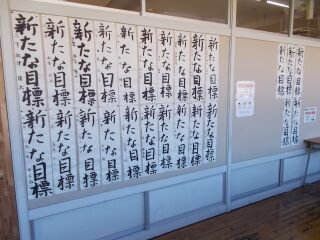 新たな目標
新たな目標
新たな目標
新たな目標
新たな目標
新たな目標
新たな目標
新たな目標
新たな目標
新たな目標
新たな目標
新たな目標
新たな目標
新たな目標
新たな目標
新たな目標
新たな目標
新たな目標
新たな目標
新たな目標
新たな目標
新たな目標